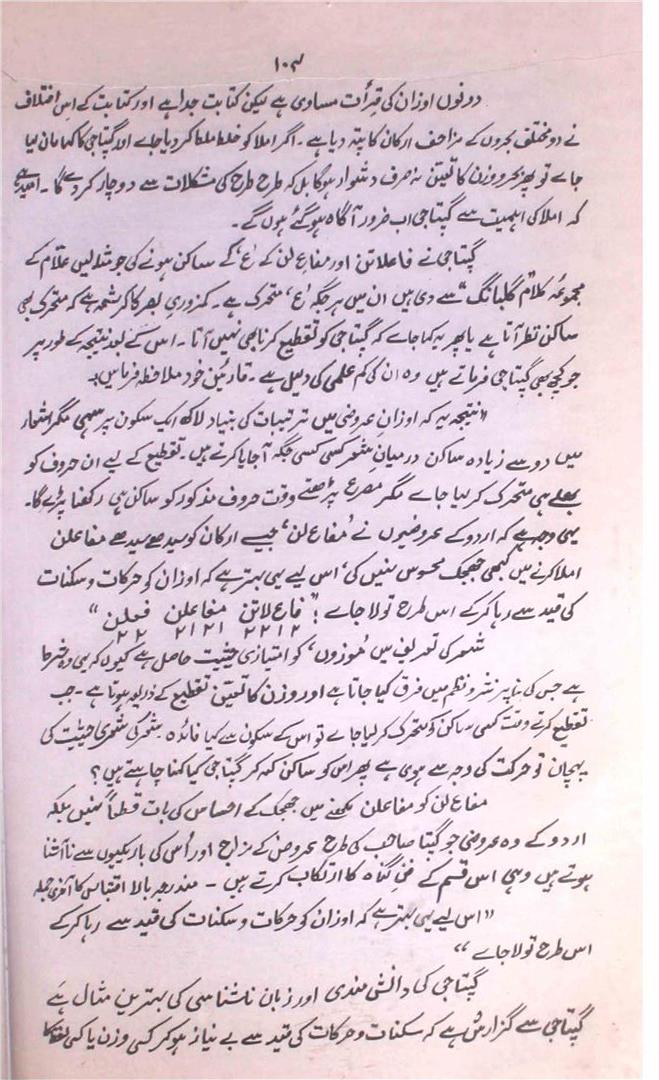 ۱۰۴
دونوں اوزان کی قرأت مساوی ہے لیکن کتابت جدا ہے اور کتابت کے اس اختلاف
نے دو مختلف بحروں کے مزاحف ارکان کا پتہ دیا ہے۔ اگر املا کو خلط ملط کر دیا جائے اور گپتا جی کا کہا مان لیا
جائے تو پھر بحر و وزن کا تعین نہ صرف دشوار ہوگا بل کہ طرح طرح کی مشکلات سے دوچار کر دے گا۔ امید ہے
کہ املا کی اہمیت سے گپتا جی اب ضرور آگاہ ہو گئے ہوں گے۔
گپتا جی نے فاعلاتن اور مفاع لن کے 'ع' کے ساکن ہونے کی جو مثالیں غلام کے
مجموعۂ کلام "گلبانگ" سے دی ہیں ان میں ہر جگہ 'ع' متحرک ہے۔ کمزوریِ بصر کا کرشمہ ہے کہ متحرک بھی
ساکن نظر آتا ہے یا پھر یہ کہا جائے کہ گپتا جی کو تقطیع کرنا بھی نہیں آتا۔ اس کے بعد نتیجہ کے طور پر
جو کچھ بھی گپتا جی فرماتے ہیں وہ ان کی کم علمی کی دلیل ہے۔ قارئین خود ملاحظہ فرمائیں:۔
"نتیجہ یہ کہ اوزانِ عروضی میں ترتیبات کی بنیاد لاکھ ایک سکون پر سہی مگر اشعار
میں دو سے زیادہ ساکن درمیانِ شعر کسی کسی جگہ آ جایا کرتے ہیں۔ تقطیع کے لیے ان حروف کو
بھلے ہی متحرک کر لیا جائے مگر مصرع پڑھتے وقت حروف مذکور کو ساکن ہی رکھنا پڑے گا۔
یہی وجہ ہے کہ اردو کے عروضیوں نے 'مفاع لن' جیسے ارکان کو سیدھے سیدھے مفاعلن
املا کرنے میں کبھی جھجک محسوس نہیں کی، اس لیے یہی بہتر ہے کہ اوزان کو حرکات و سکنات
کی قید سے رہا کر کے اس طرح تولا جائے:" فاع لاتن مفاعلن فعلن"
۲۲۱۲ ۲۱۲۱ ۲۲
شعر کی تعریف میں 'موزوں' کو امتیازی حیثیت حاصل ہے کیوں کہ یہی وہ
ہے جس کی بنا پر نثر و نظم میں فرق کیا جاتا ہے اور وزن کا تعین تقطیع کے ذریعہ ہوتا ہے۔ جب
تقطیع کرتے وقت کسی ساکن کو متحرک کر لیا جائے تو اس کے سکون سے کیا فائدہ شعر کی شعری حیثیت کی
پہچان تو حرکت کی وجہ سے ہوئی ہے پھر اس کو ساکن کہہ کر گپتا جی کیا کہنا چاہتے ہیں؟
مفاع لن کو مفاعلن لکھنے میں جھجک کے احساس کی بات قطعاً نہیں بلکہ
اردو کے وہ عروضی جو گپتا صاحب کی طرح عروض کے مزاج اور اُس کی باریکیوں سے ناآشنا
ہوتے ہیں وہی اس قسم کے فنی گناہ کا ارتکاب کرتے ہیں۔ مندرجہ بالا اقتباس کا آخری جملہ
"اس لیے یہی بہتر ہے کہ اوزان کو حرکات و سکنات کی قید سے رہا کر کے
اس طرح تولا جائے"
گپتا جی کی دانش مندی اور زبان ناشناسی کی بہترین مثال ہے
گپتا جی سے گزارش ہے کہ سکنات و حرکات کی قید سے بے نیاز ہو کر کسی وزن یا کسی لفظ کا